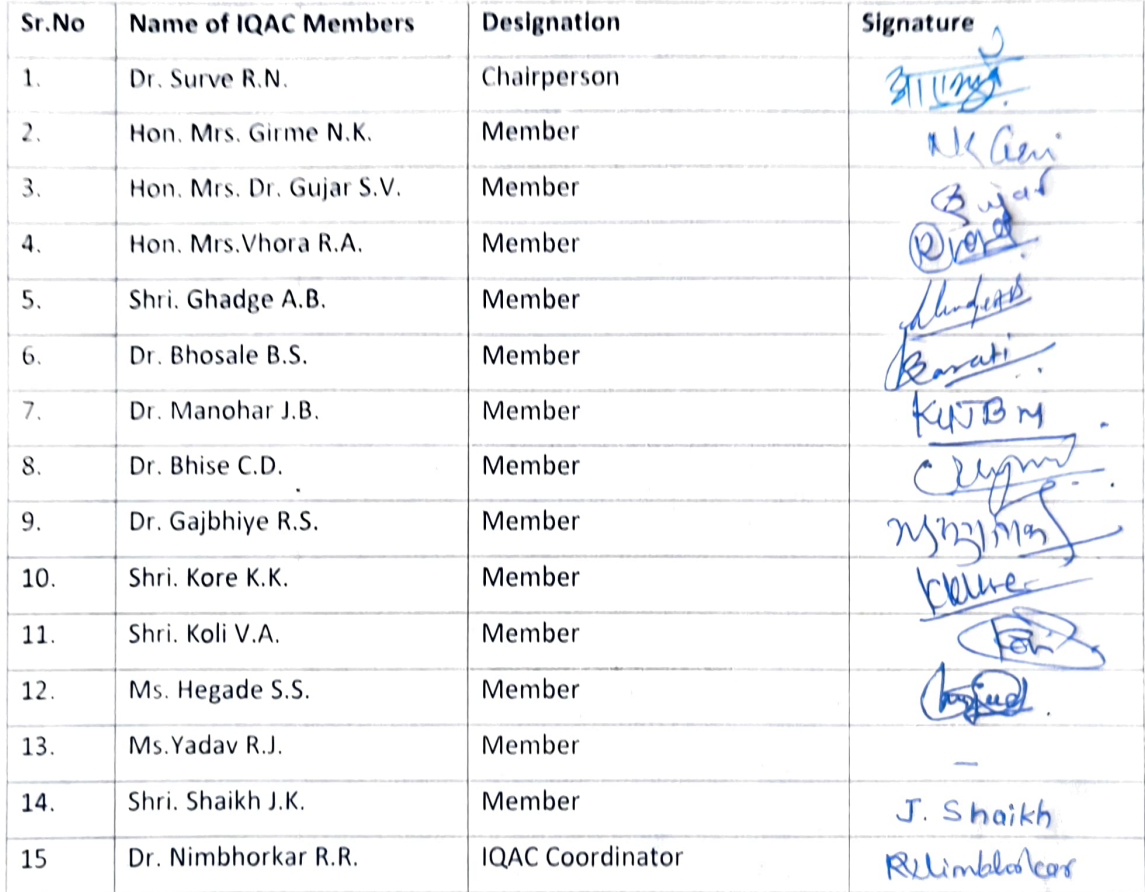 Sr.No Name of IQAC Members Designation Signature
1. Dr. Surve R.N. Chairperson
2. Hon. Mrs. Girme N.K. Member
3. Hon. Mrs. Dr. Gujar S.V. Member Gujar
4. Hon. Mrs.Vhora R.A. Member
5. Shri. Ghadge A.B. Member
6. Dr. Bhosale B.S. Member
7. Dr. Manohar J.B. Member
8. Dr. Bhise C.D. Member
9. Dr. Gajbhiye R.S. Member
10. Shri. Kore K.K. Member
11. Shri. Koli V.A. Member
12. Ms. Hegade S.S. Member
13. Ms.Yadav R.J. Member –
14. Shri. Shaikh J.K. Member J. Shaikh
15 Dr. Nimbhorkar R.R. IQAC Coordinator